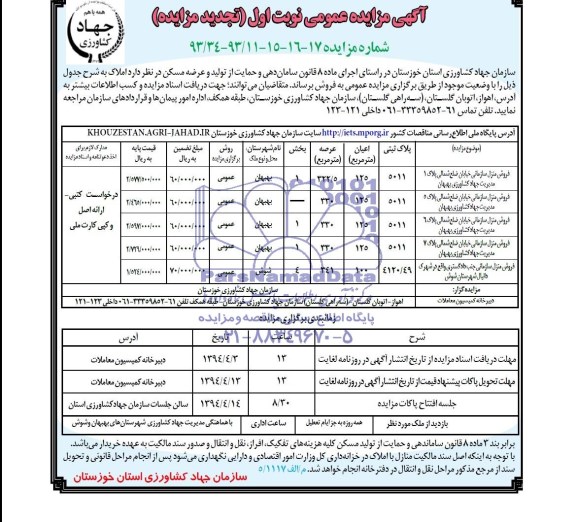 آگهی مزایده عمومی نوبت اول (تجدید مزایده)
شماره مزایده ۱۷-۱۶-۱۵-۱۱-۹۳/۳۴-۹۳
همه با هم
جهاد
کشاورزی
سازمان جهاد کشاورزی استان خوزستان در راستای اجرای ماده ۸ قانون سامان‌دهی و حمایت از تولید و عرضه مسکن در نظر دارد املاک به شرح جدول
ذیل را با وضعیت موجود از طریق برگزاری مزایده عمومی به فروش برساند. متقاضیان می‌توانند: جهت دریافت اسناد مزایده و کسب اطلاعات بیشتر به
آدرس، اهواز، اتوبان گلستان، (سه‌راهی گلستان)، سازمان جهاد کشاورزی خوزستان، طبقه همکف، اداره امور پیمان‌ها و قراردادهای سازمان مراجعه
نمایید. تلفن تماس: ۶۱-۳۳۳۵۹۸۵۲-۰۶۱ داخلی ۱۲۲-۱۲۱
آدرس پایگاه ملی اطلاع‌رسانی مناقصات کشور http://iets.mporg.ir سایت سازمان جهاد کشاورزی خوزستان KHOUZESTAN.AGRI-JAHAD.IR
موضوع مزایده: پلاک ثبتی اعیان (مترمربع) عرصه (مترمربع) بخش نام شهرستان: محل و نوع ملک روش برگزاری مزایده مبلغ تضمین به ریال قیمت پایه به ریال مدارک لازم برای اخذ دعوتنامه و اسناد مزایده
فروش منزل سازمانی خیابان ضلع شمالی پلاک ۱ مدیریت جهاد کشاورزی بهبهان ۵۰۱۱ ۱۲۵ ۳۲۲/۵ ۱ بهبهان عمومی ۶۰/۰۰۰/۰۰۰
فروش منزل سازمانی خیابان ضلع شمالی پلاک ۵ مدیریت جهاد کشاورزی بهبهان ۵۰۱۱ ۱۲۵ ۳۳۰ — بهبهان عمومی ۶۰/۰۰۰/۰۰۰
فروش منزل سازمانی خیابان ضلع شمالی پلاک ۶ مدیریت جهاد کشاورزی بهبهان ۵۰۱۱ ۱۲۵ ۳۳۰ ۱ بهبهان عمومی ۶۰/۰۰۰/۰۰۰
فروش منزل سازمانی خیابان ضلع شمالی پلاک ۷ مدیریت جهاد کشاورزی بهبهان ۵۰۱۱ ۱۲۵ ۳۳۰ ۱ بهبهان عمومی ۶۰/۰۰۰/۰۰۰
فروش منزل سازمانی جنب دادگستری واقع در شهرک دانیال شهرستان شوش ۴۱۲۰/۴۹ ۱۰۰ ۳۴۱ ۴ شوش عمومی ۷۰/۰۰۰/۰۰۰
درخواست کتبی-
ارائه اصل
و کپی کارت ملی
مزایده گزار: سازمان جهاد کشاورزی استان خوزستان
دبیرخانه کمیسیون معاملات اهواز - اتوبان گلستان - (سه‌راهی گلستان) سازمان جهاد کشاورزی خوزستان - طبقه همکف تلفن ۶۱-۳۳۳۵۹۸۵۲-۰۶۱ داخلی ۱۲۲-۱۲۱
ParsNamadData
زمانبندی برگزاری مزایده
پایگاه اطلاع رسانی مناقصه و مزایده
۰۲۱-۸۸۳۴۹۶۷۰-۵
شرح ساعت تاریخ آدرس
مهلت دریافت اسناد مزایده از تاریخ انتشار آگهی در روزنامه لغایت ۱۳ ۱۳۹۴/۴/۳ دبیرخانه کمیسیون معاملات
مهلت تحویل پاکات پیشنهاد قیمت از تاریخ انتشار آگهی در روزنامه لغایت ۱۳ ۱۳۹۴/۴/۱۳ دبیرخانه کمیسیون معاملات
جلسه افتتاح پاکات مزایده ۸/۳۰ ۱۳۹۴/۴/۱۴ سالن جلسات سازمان جهاد کشاورزی استان
بازدید از ملک مورد نظر ساعت اداری همه روزه به جز ایام تعطیل با هماهنگی مدیریت جهاد کشاورزی شهرستان‌های بهبهان و شوش
برابر بند ۳ ماده ۸ قانون ساماندهی و حمایت از تولید مسکن کلیه هزینه‌های تفکیک، افراز، نقل و انتقال و صدور سند مالکیت به عهده خریدار می‌باشد.
با توجه به اینکه اصل سند مالکیت منازل یا املاک در خزانه‌داری کل وزارت امور اقتصادی و دارایی نگهداری می‌شود پس از انجام مراحل قانونی و تحویل
سند از مرجع مذکور مراحل نقل و انتقال در دفترخانه انجام خواهد شد. م الف ۵/۱۱۱۷
سازمان جهاد کشاورزی استان خوزستان